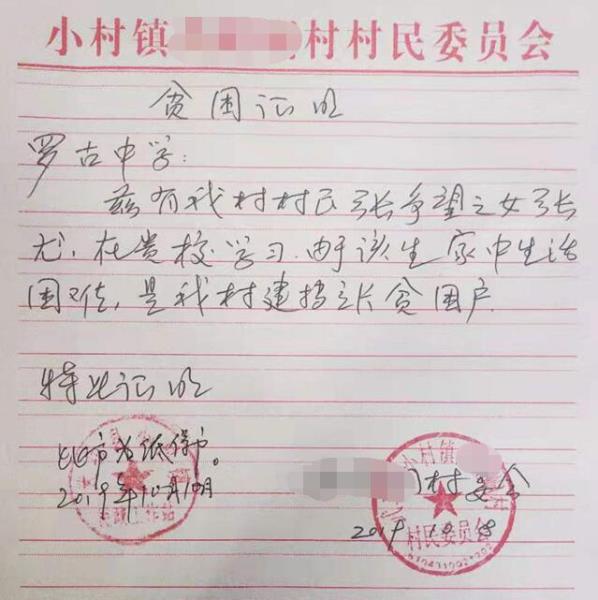 小村镇 村村民委员会
贫困证明
罗古中学:
兹有我村村民张争望之女张
尤,在贵校学习.由于该生家中生活
困难,是我村建档立卡贫困户
特此证明
此户为低保户。
2019年10月10日
村委会
2019
小村镇
村民委员会